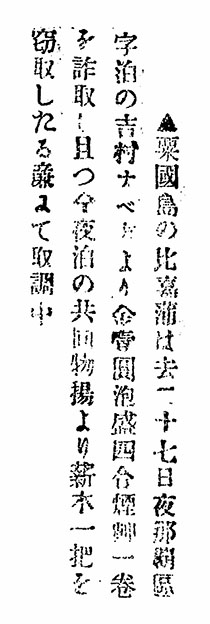 ▲粟國島の比嘉蒲は去二十七日夜那覇區
字泊の吉村ナベ方より金壹圓泡盛四合煙艸一卷
を詐取し且つ仝夜泊の共同物揚より薪木一把を
窃取したる廉まて取調中